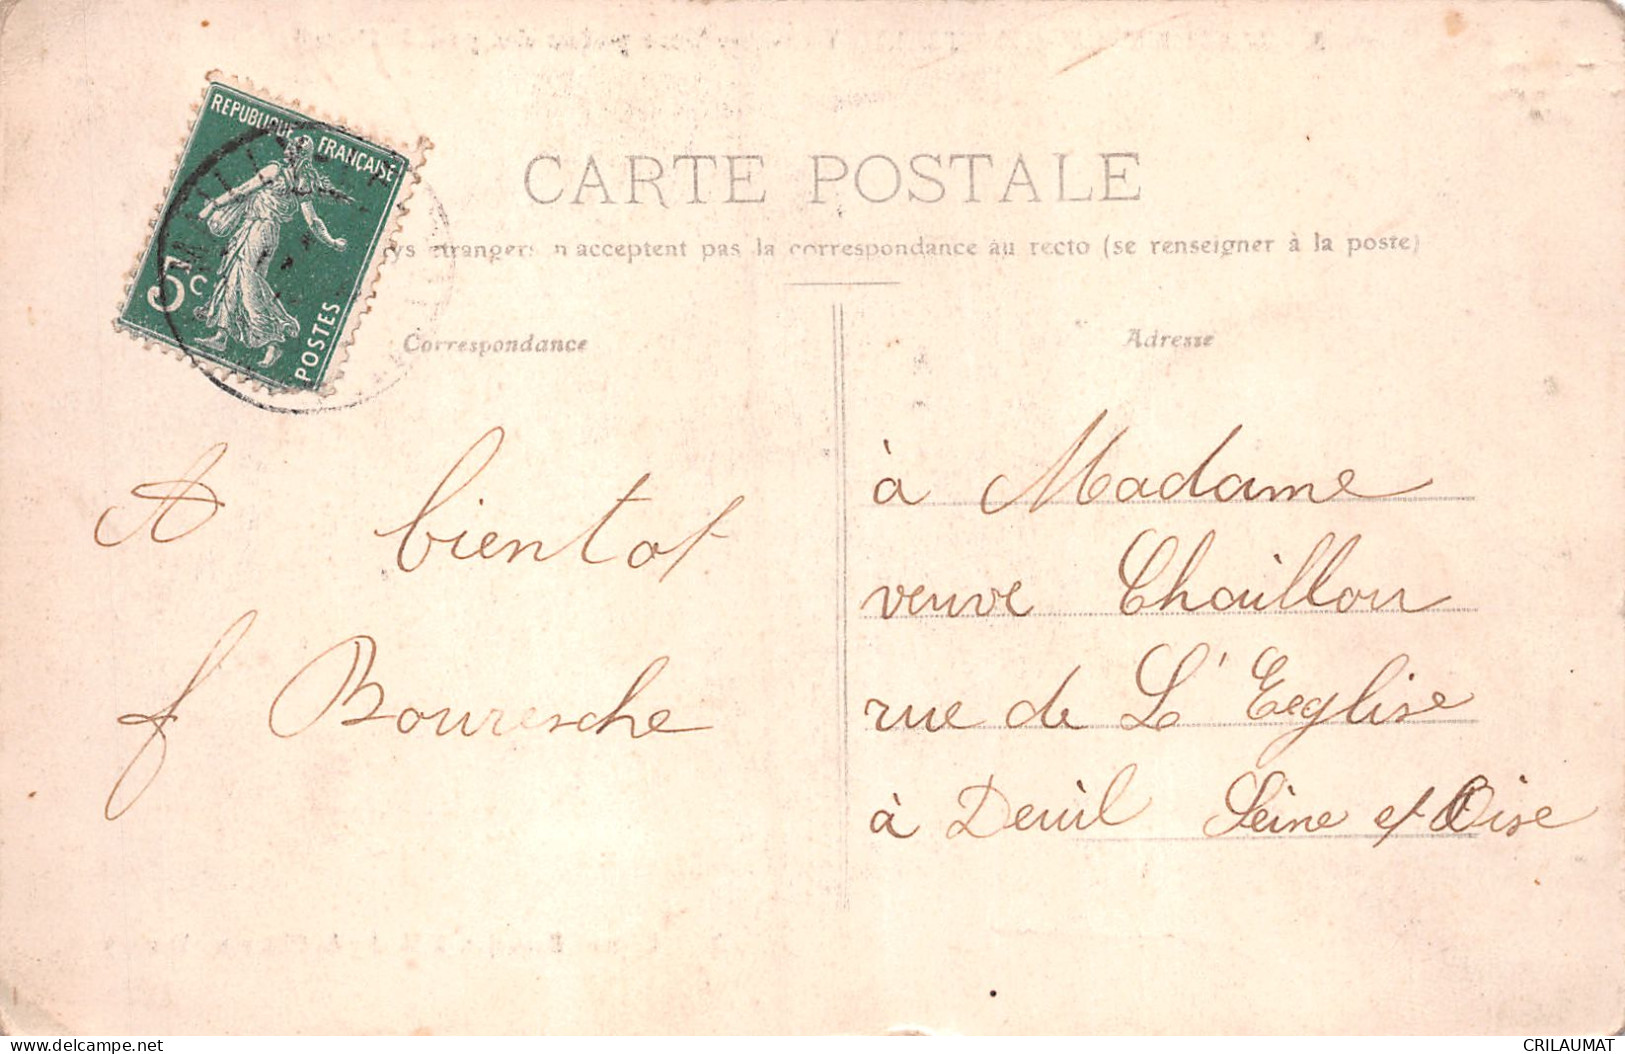 REPUBLIQUE FRANÇAISE
5c
POSTES
CARTE POSTALE
ys étrangers n'acceptent pas la correspondance au recto (se renseigner à la poste)
Correspondance
A bientot
f Bouresche
Adresse
à Madame
veuve Chaillou
rue de L'Eeglise
à Deuil Seine et Oise
delcampe.net
CRILAUMAT